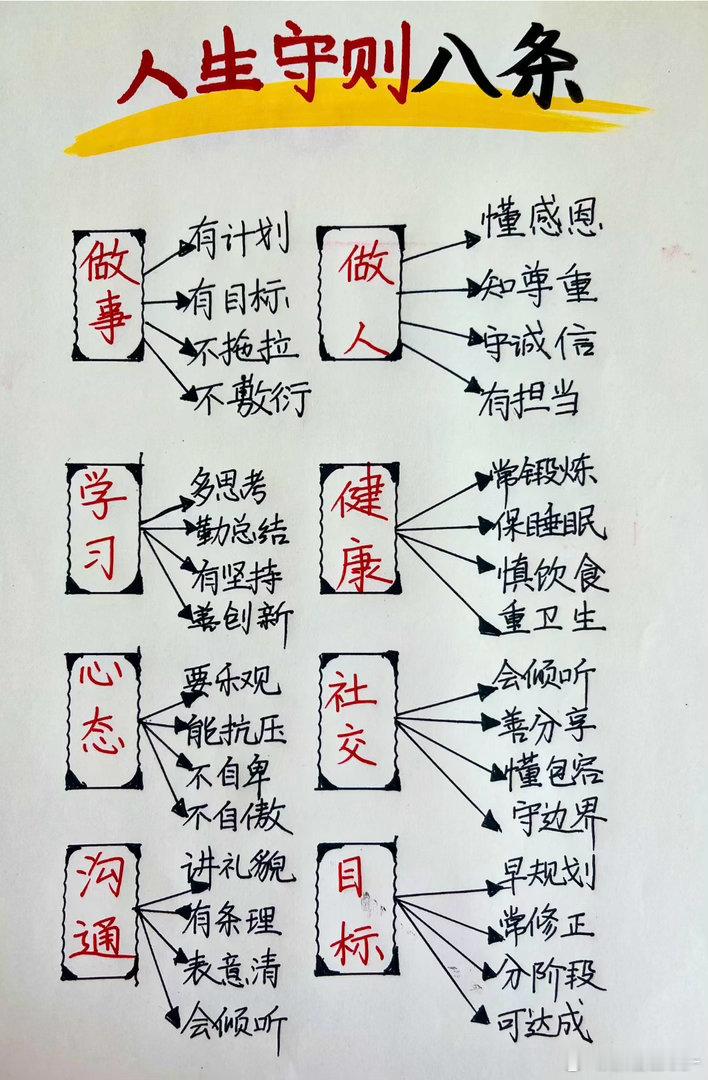 人生守则八条
做事
有计划
有目标
不拖拉
不敷衍
做人
懂感恩
知尊重
守诚信
有担当
学习
多思考
勤总结
有坚持
善创新
健康
常锻炼
保睡眠
慎饮食
重卫生
心态
要乐观
能抗压
不自卑
不自傲
社交
会倾听
善分享
懂包容
守边界
沟通
讲礼貌
有条理
表意清
会倾听
目标
早规划
常修正
分阶段
可达成